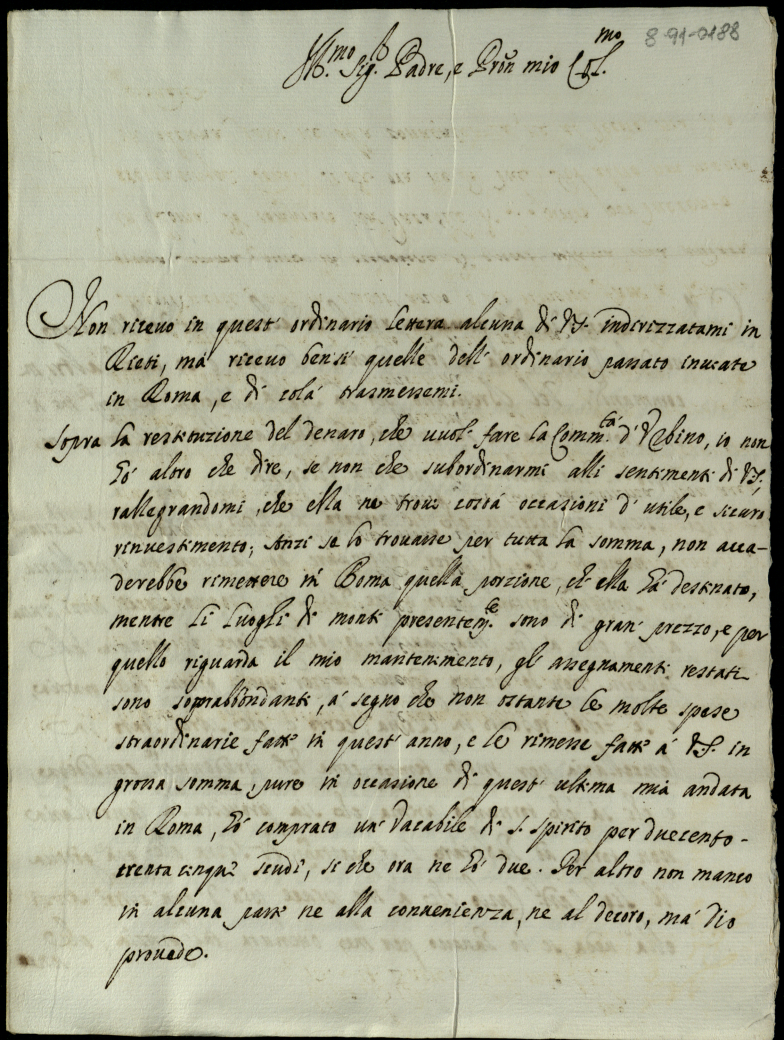 8-91-0188
Ill.mo Sig.r Padre, e Pron mio Col.mo
Non riceuo in quest' ordinario lettera alcuna di V.S. indirizzatami in
Rieti, ma riceuo bensì quelle dell' ordinario passato inuiate
in Roma, e di colà trasmessemi.
Sopra la restituzione del denaro, che uuol fare la Comm.tà d' Vrbino, io non
hò altro che dire, se non che subordinarmi alli sentimenti di V.S.
rallegrandomi, che ella ne troui costà occasioni d' utile, e sicuro
rinuestimento; Anzi se lo trouasse per tutta la somma, non acca-
derebbe rimettere in Roma quella porzione, ch' ella hà destinato,
mentre li Luoghi di monti presentem.te sono di gran prezzo, e per
quello riguarda il mio mantenimento, gl' assegnamenti restati
sono soprabbondanti, à segno che non ostante le molte spese
straordinarie fatte in quest' anno, e le rimesse fatte à V.S. in
grossa somma, pure in occasione di quest' ultima mia andata
in Roma, hò comprato un' Vacabile di S. Spirito per duecento-
trenta cinque scudi, si che ora ne hò due. Per altro non manco
in alcuna parte ne alla conuenienza, ne al decoro, mà Dio
prouede.